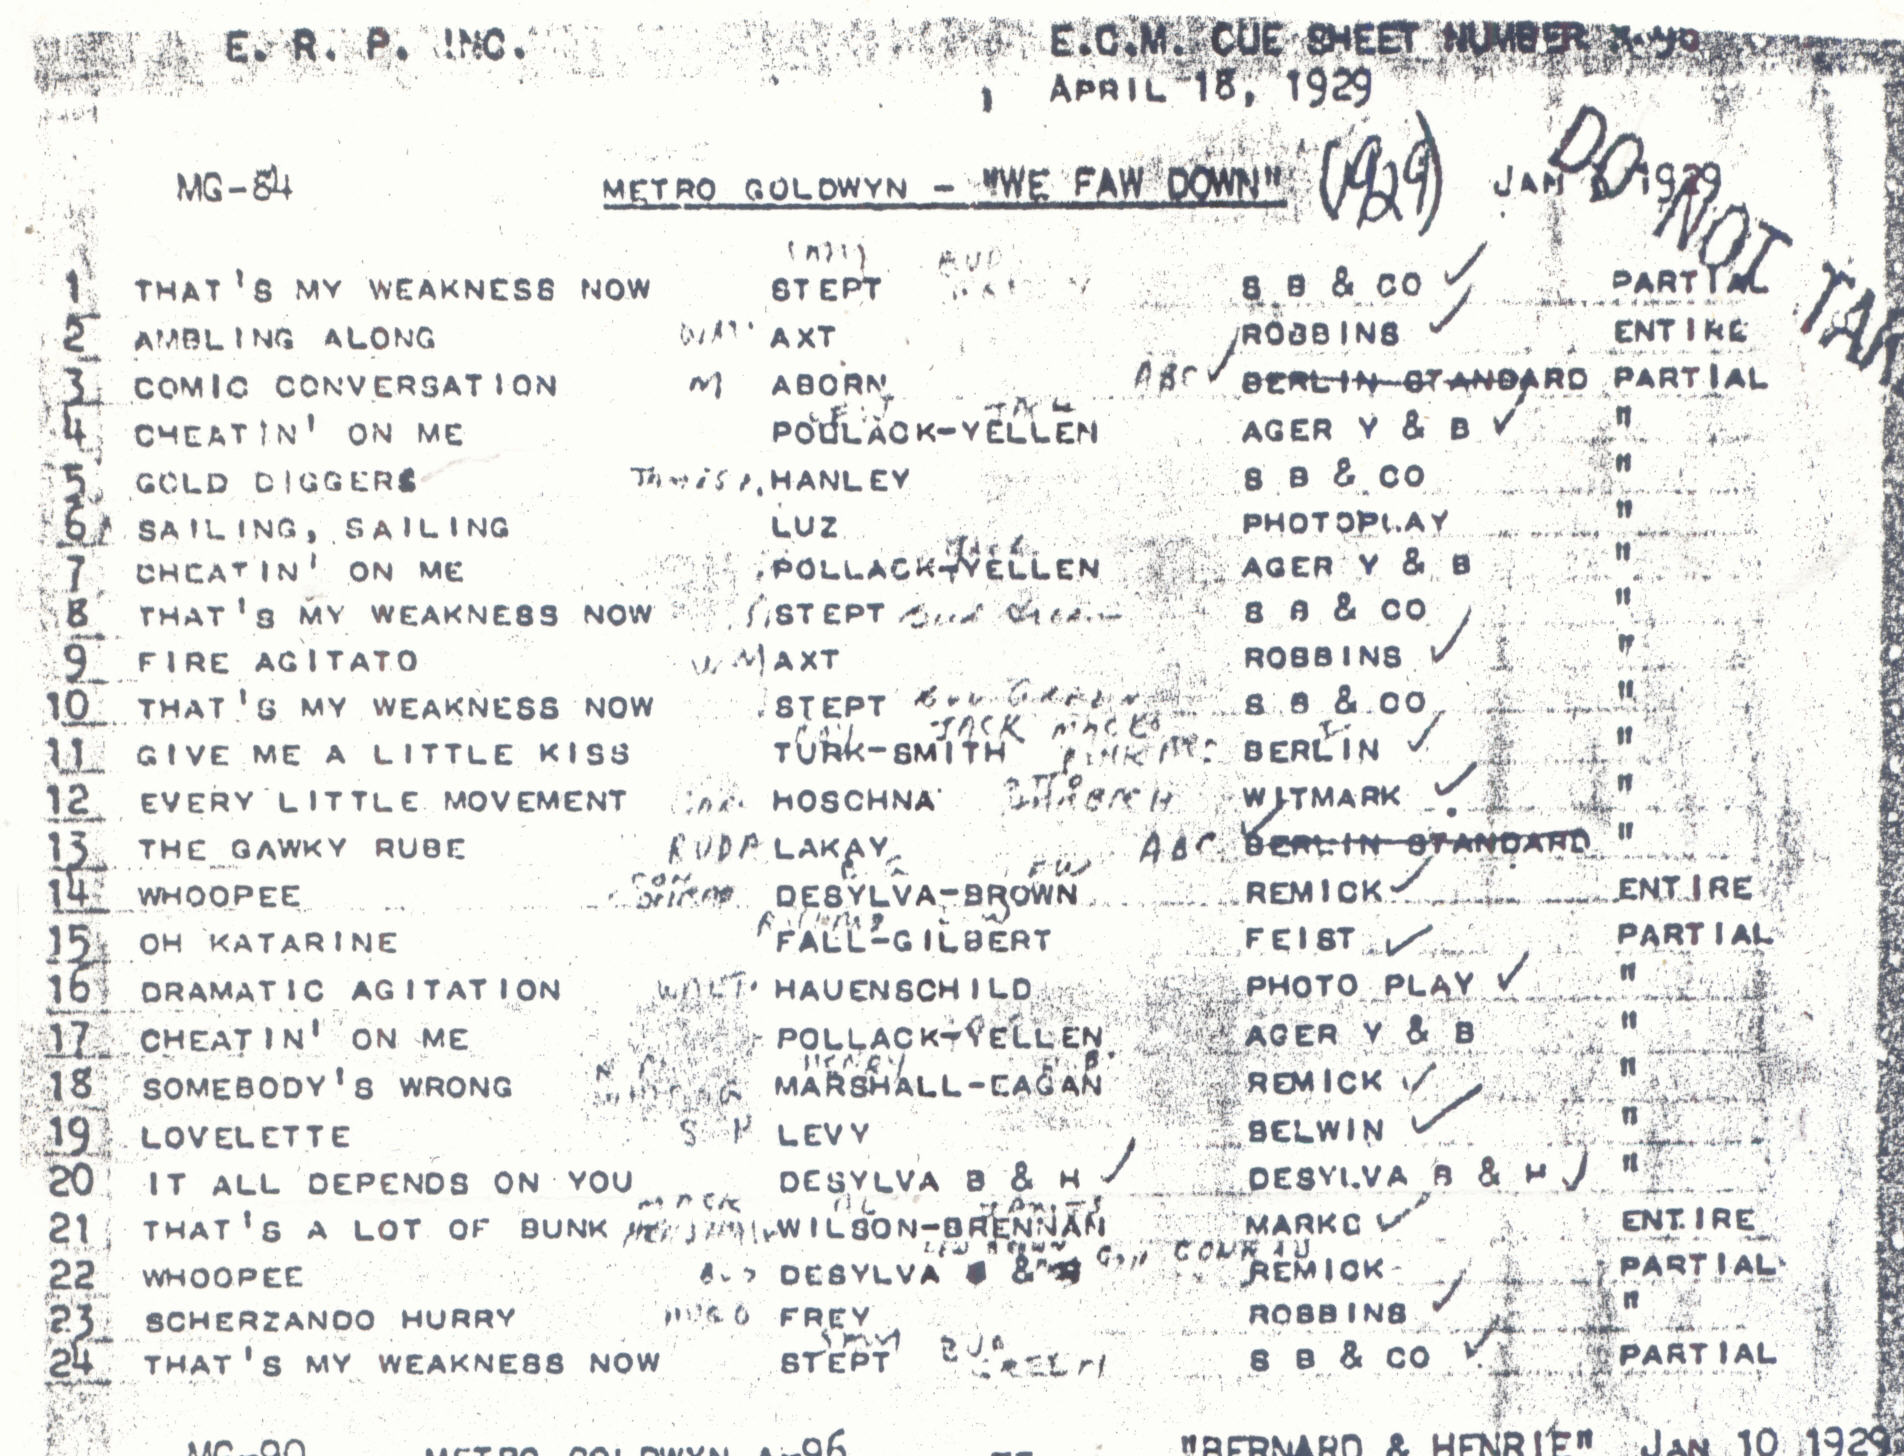 E. R. P. INC. E.C.M. CUE SHEET NUMBER
APRIL 18, 1929
MG-84 METRO GOLDWYN - "WE FAW DOWN" (1929) JAN 1929
DO NOT
1 THAT'S MY WEAKNESS NOW STEPT BUD S B & CO ✓ PARTIAL
2 AMBLING ALONG AXT ROBBINS ✓ ENTIRE
3 COMIC CONVERSATION M ABORN ABC ✓ BERLIN STANDARD PARTIAL
4 CHEATIN' ON ME POLLACK-YELLEN AGER Y & B ✓ "
5 GOLD DIGGERS HANLEY S B & CO "
6 SAILING, SAILING LUZ PHOTOPLAY "
7 CHEATIN' ON ME POLLACK-YELLEN AGER Y & B "
8 THAT'S MY WEAKNESS NOW STEPT Bud Green S B & CO "
9 FIRE AGITATO WM AXT ROBBINS ✓ "
10 THAT'S MY WEAKNESS NOW STEPT BUD GREEN S B & CO "
JACK
11 GIVE ME A LITTLE KISS TURK-SMITH BERLIN ✓ "
12 EVERY LITTLE MOVEMENT HOSCHNA WITMARK ✓ "
13 THE GAWKY RUBE LAKAY ABC ✓ BERLIN STANDARD "
14 WHOOPEE DESYLVA-BROWN REMICK ✓ ENTIRE
15 OH KATARINE FALL-GILBERT FEIST ✓ PARTIAL
16 DRAMATIC AGITATION WALT. HAUENSCHILD PHOTO PLAY ✓ "
17 CHEATIN' ON ME POLLACK-YELLEN AGER Y & B "
HENRY
18 SOMEBODY'S WRONG MARSHALL-EAGAN REMICK ✓ "
19 LOVELETTE LEVY BELWIN ✓ "
20 IT ALL DEPENDS ON YOU DESYLVA B & H ✓ DESYLVA B & H ✓ "
AL
21 THAT'S A LOT OF BUNK WILSON-BRENNAN MARKC ✓ ENTIRE
LEW BROWN CON CONRAD
22 WHOOPEE DESYLVA & REMICK PARTIAL
23 SCHERZANDO HURRY HUGO FREY ROBBINS ✓ "
24 THAT'S MY WEAKNESS NOW STEPT BUD GREEN S B & CO ✓ PARTIAL
MG-90 METRO GOLDWYN "BERNARD & HENRIE" JAN 10 1929